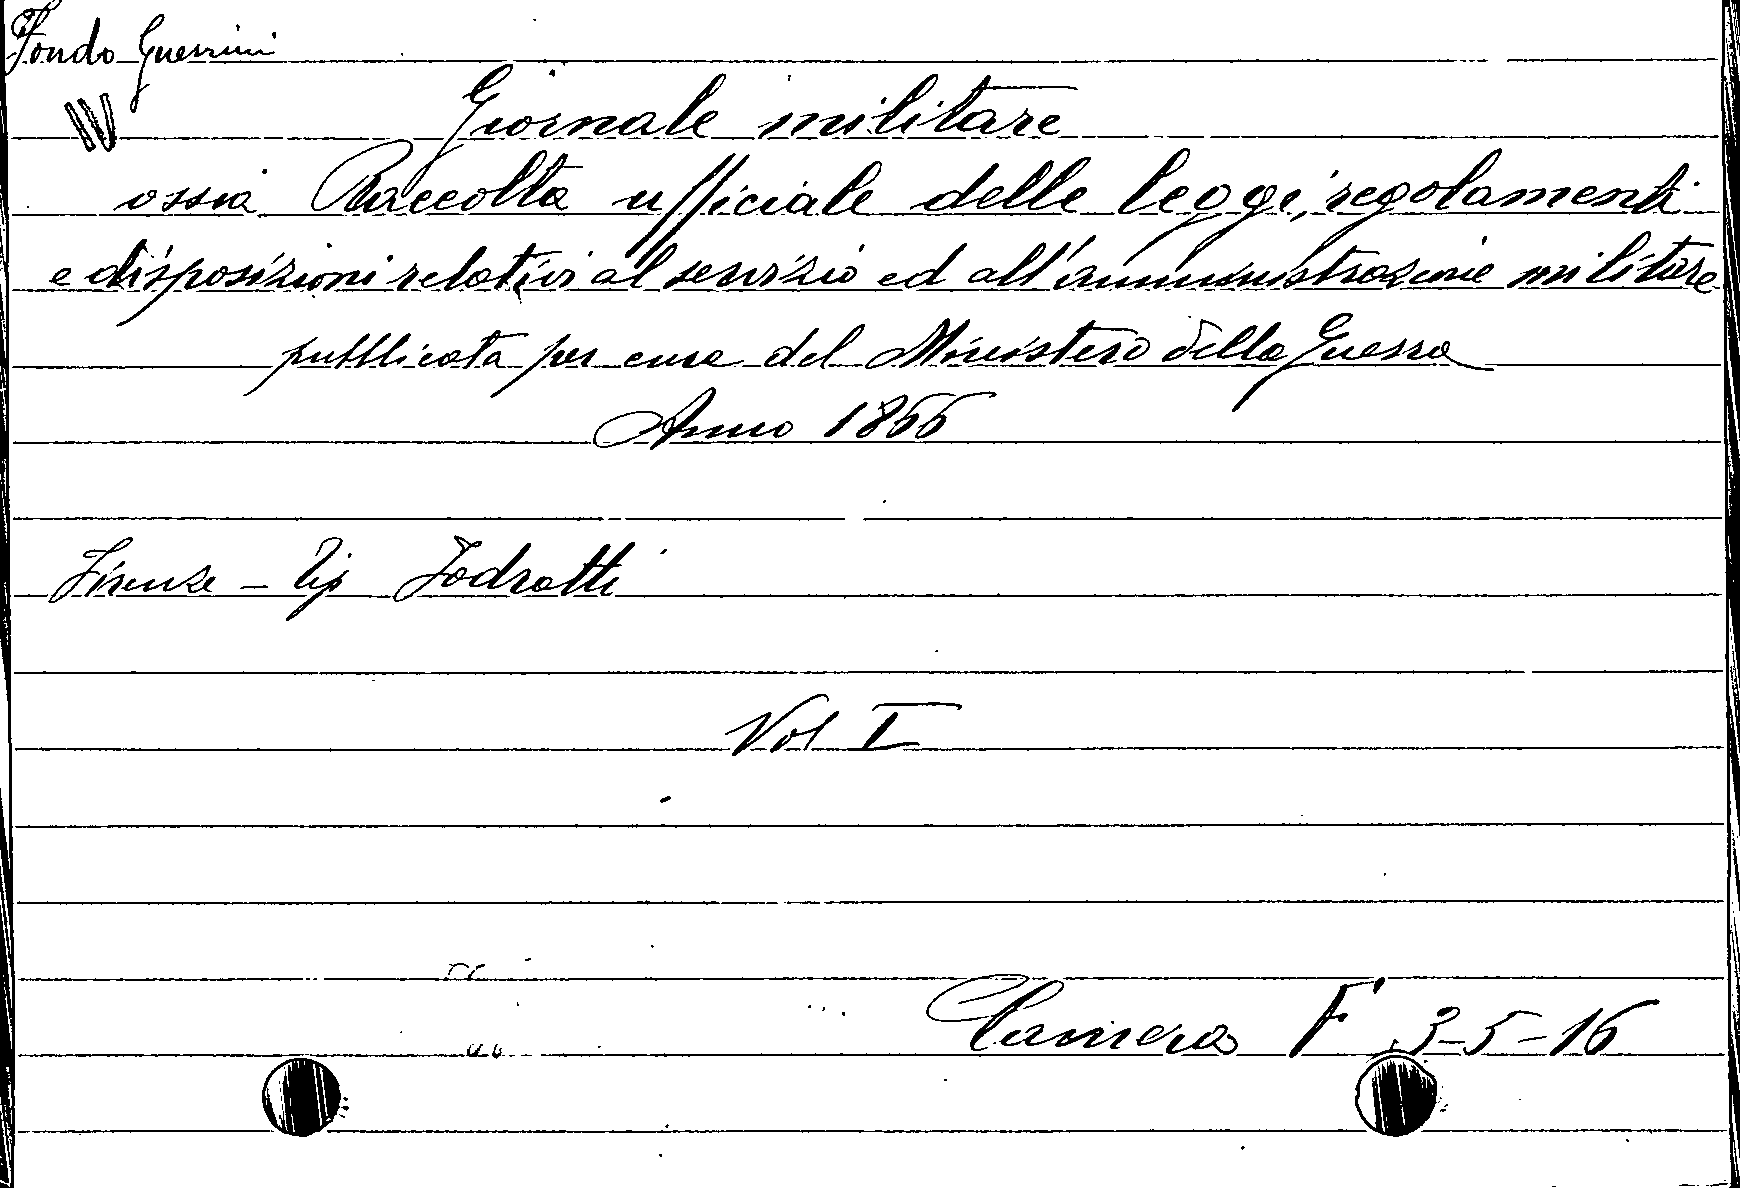 Fondo Guerrini
IV
Giornale militare
ossia Raccolta ufficiale delle leggi, regolamenti
e disposizioni relativi al servizio ed all'amministrazione militare
pubblicata per cura del Ministero della Guerra
Anno 1866
Firenze - Tip Fodratti
Vol I
Camera F 3-5-16